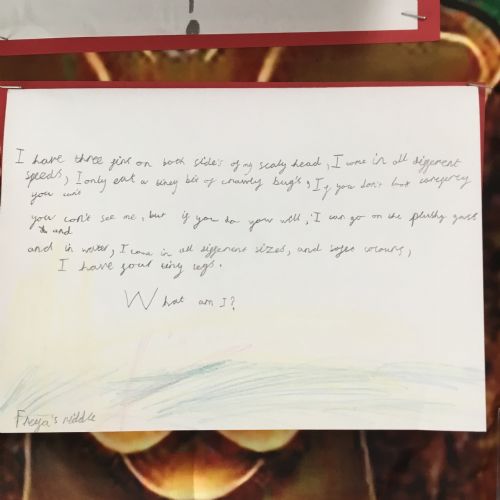 I have three fins on both side's of my scaly head, I come in all different
speeds, I only eat a tiney bit of crawly bug's, If you don't look carefully
you can't see me, but if you do you will, I can go on the plushy grass
and
and in water, I come in all different sizes, and colours,
I have four tiny legs.
What am I?
Freya's riddle